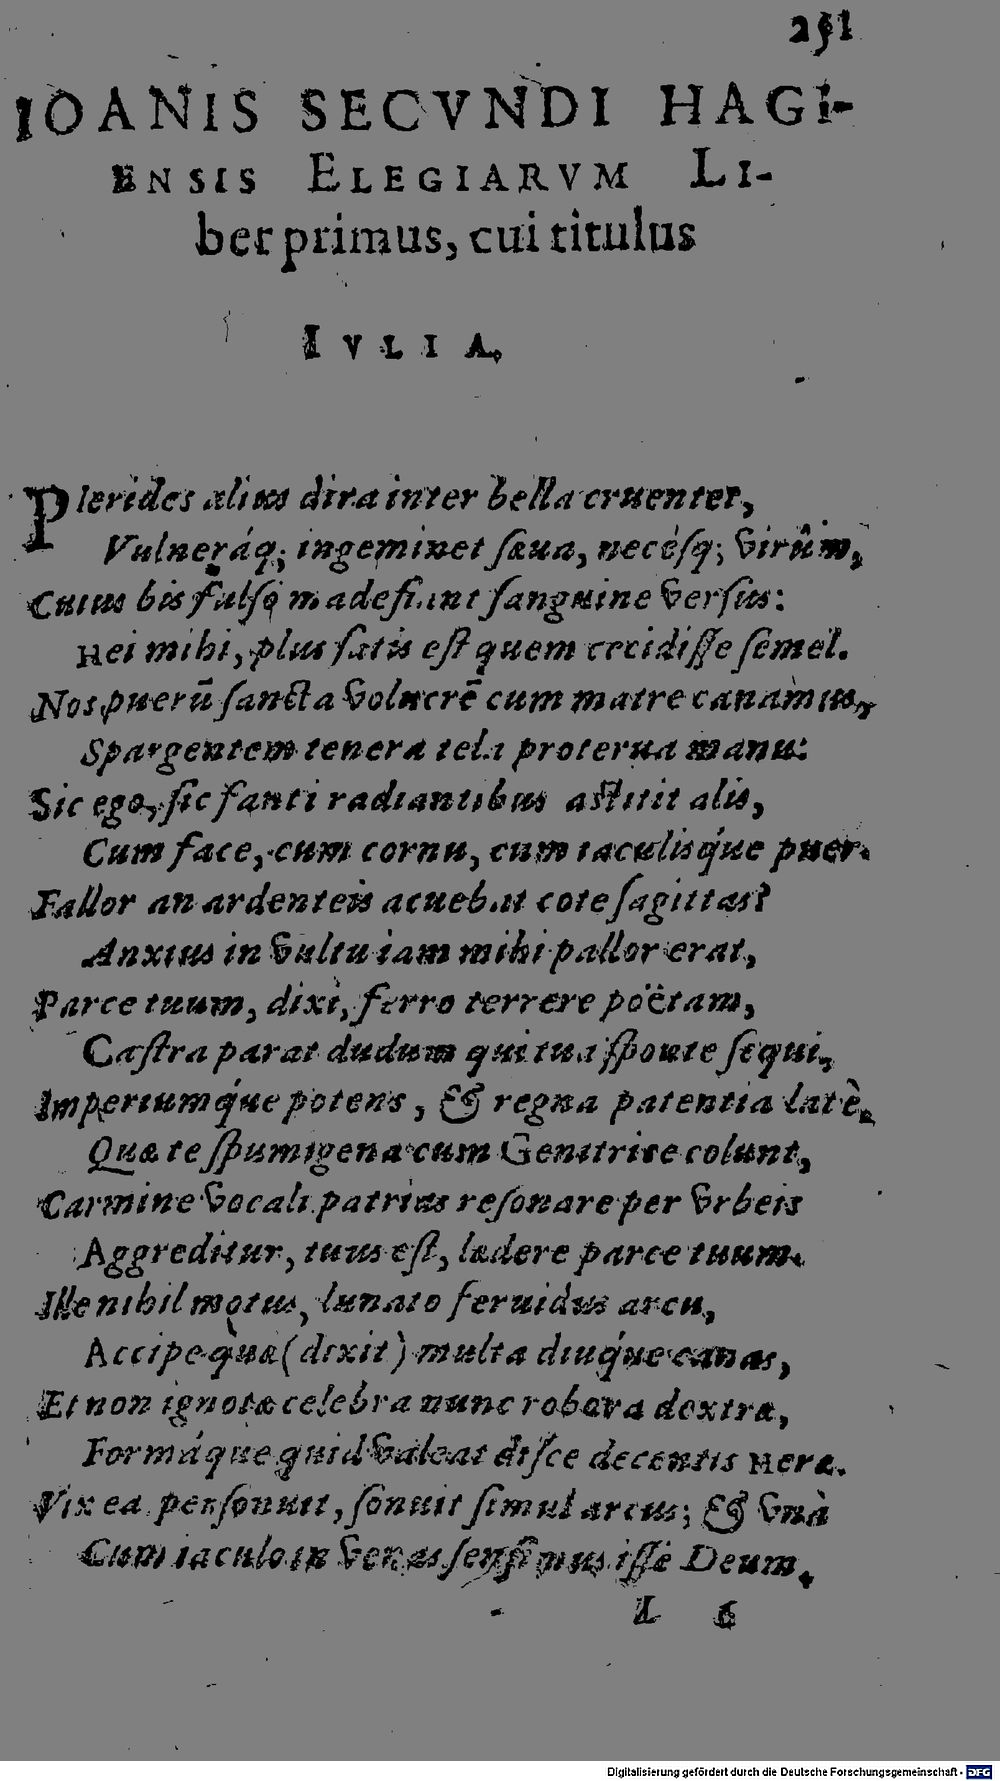 251
IOANIS SECVNDI HAGI-
ENSIS ELEGIARVM LI-
ber primus, cui titulus
IVLIA.
PIerides alius dira inter bella cruentet,
Vulneráq; ingeminet sæua, necésq; virûm,
Cuius bis fuso madefiant sanguine versus:
Hei mihi, plus satis est quem cecidisse semel.
Nos puerū sancta volucrē cum matre canamus,
Spargentem tenera tela proterua manu:
Sic ego, sic fanti radiantibus astitit alis,
Cum face, cum cornu, cum iaculisq́ue puer.
Fallor an ardenteis acuebat cote sagittas?
Anxius in vultu iam mihi pallor erat,
Parce tuum, dixi, ferro terrere poëtam,
Castra parat dudum qui tua sponte sequi,
Imperiumq́ue potens, & regna patentia latè,
Quæ te spumigena cum Genitrice colunt,
Carmine vocali patrius resonare per vrbeis
Aggreditur, tuus est, lædere parce tuum.
Ille nihil motus, lunato feruidus arcu,
Accipe quæ (dixit) multa diuq́ue canas,
Et non ignotæ celebra nunc robora dextræ,
Formáque quid valeat disce decentis Heræ.
Vix ea personuit, sonuit simul arcus; & vnà
Cum iaculo in venas sensimus isse Deum.
L 6
Digitalisierung gefördert durch die Deutsche Forschungsgemeinschaft - DFG